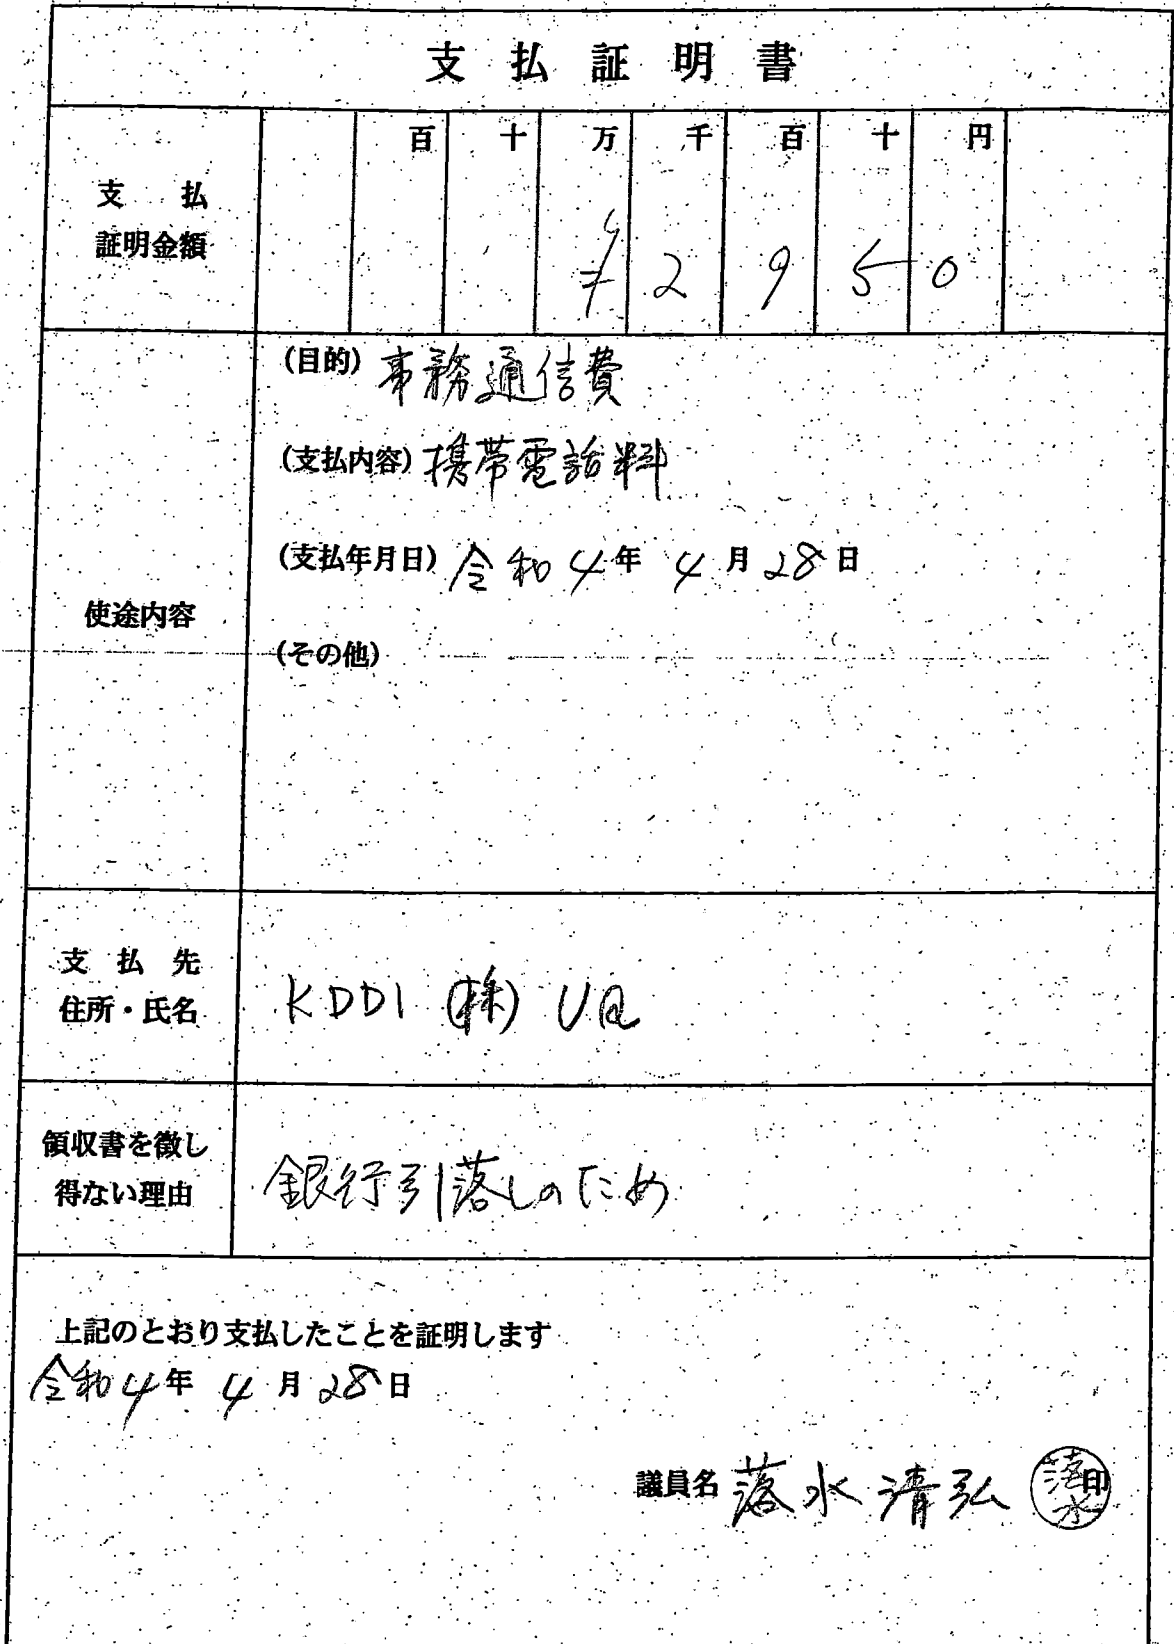 支払証明書
百 十 万 千 百 十 円
支払
証明金額
¥ 2 9 5 0
(目的) 事務通信費
(支払内容) 携帯電話料
(支払年月日) 令和4年 4月28日
使途内容
(その他)
支払先
住所・氏名
KDDI (株) UQ
領収書を徴し
得ない理由
銀行引落しのため
上記のとおり支払したことを証明します
令和4年 4月28日
議員名 落水清弘 印
落水